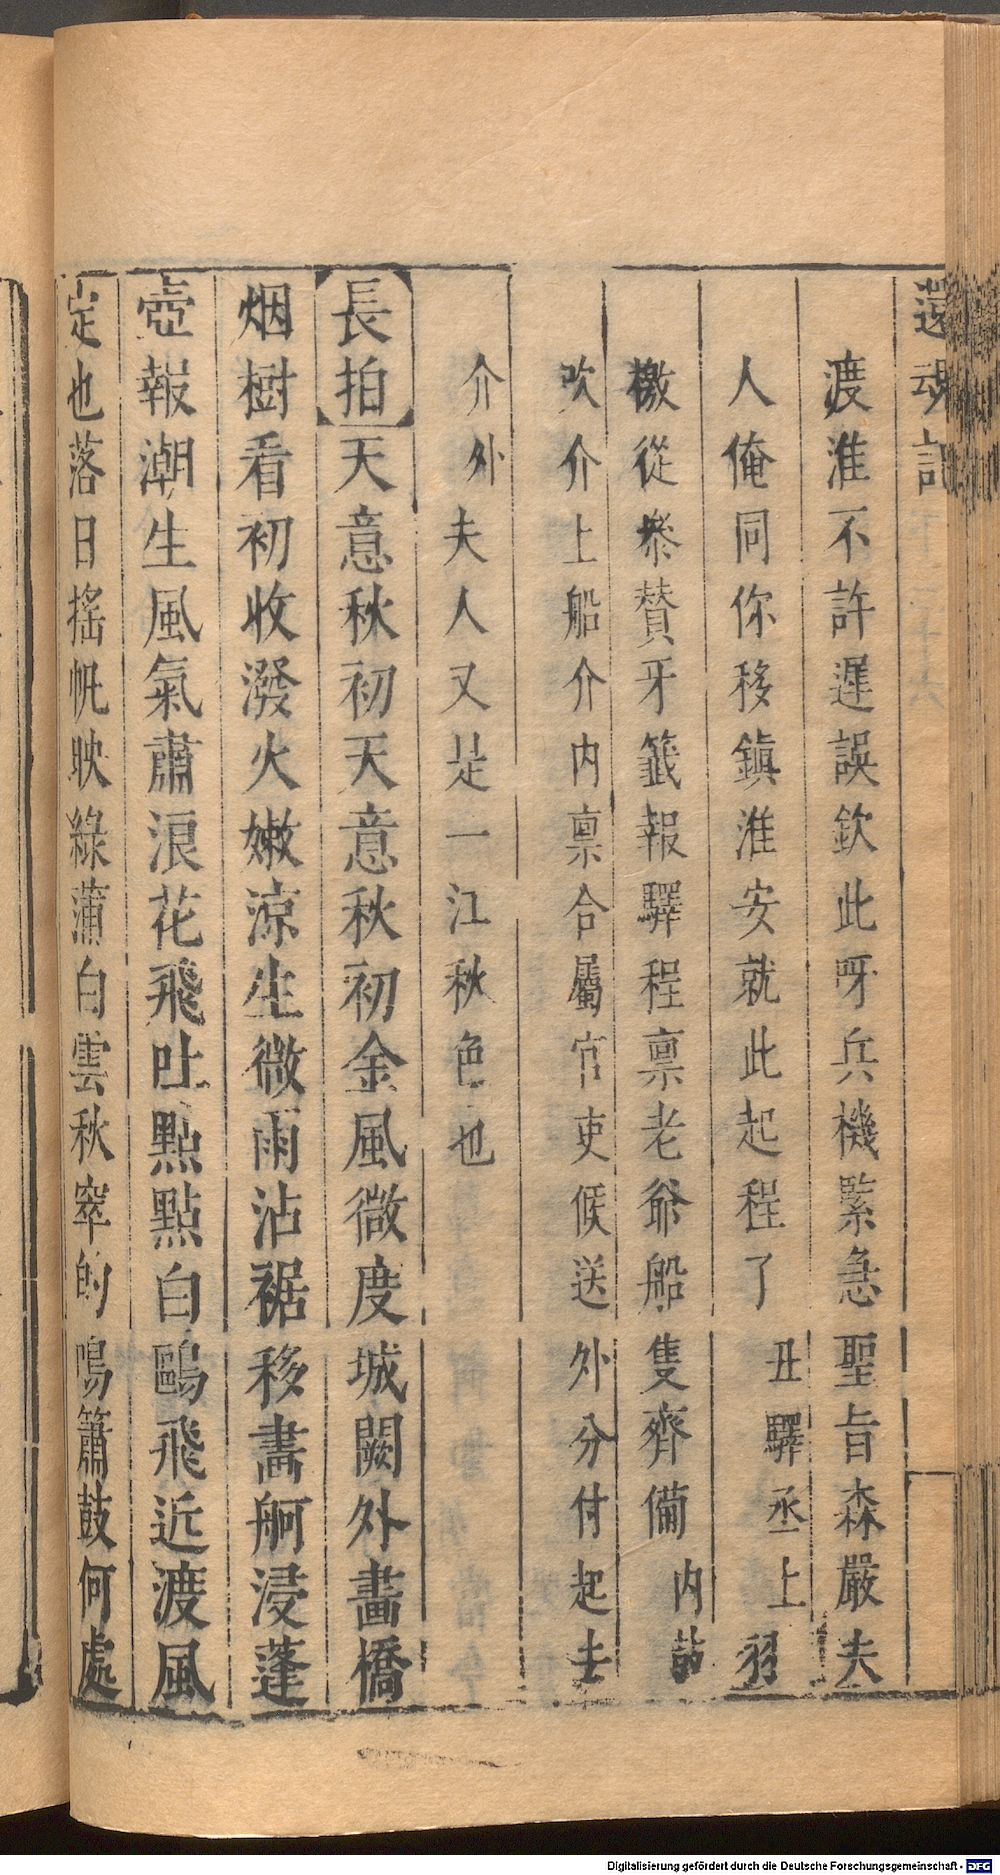 還魂記
渡淮不許遲誤欽此呀兵機緊急聖旨森嚴夫
人俺同你移鎮淮安就此起程了丑驛丞上羽
檄從叅賛牙籤報驛程禀老爺船隻齊備内鼓
吹介上船介内禀合屬官吏候送外分付起去
介外夫人又是一江秋色也
長拍天意秋初天意秋初金風微度城闕外畵橋
烟樹看初收潑火嫩涼生微雨沾裾移畵舸浸蓬
壺報潮生風氣蕭浪花飛吐點點白鷗飛近渡風
定也落日搖帆映綠蒲白雲秋窣的鳴簫鼓何處
Digitalisierung gefördert durch die Deutsche Forschungsgemeinschaft - DFG